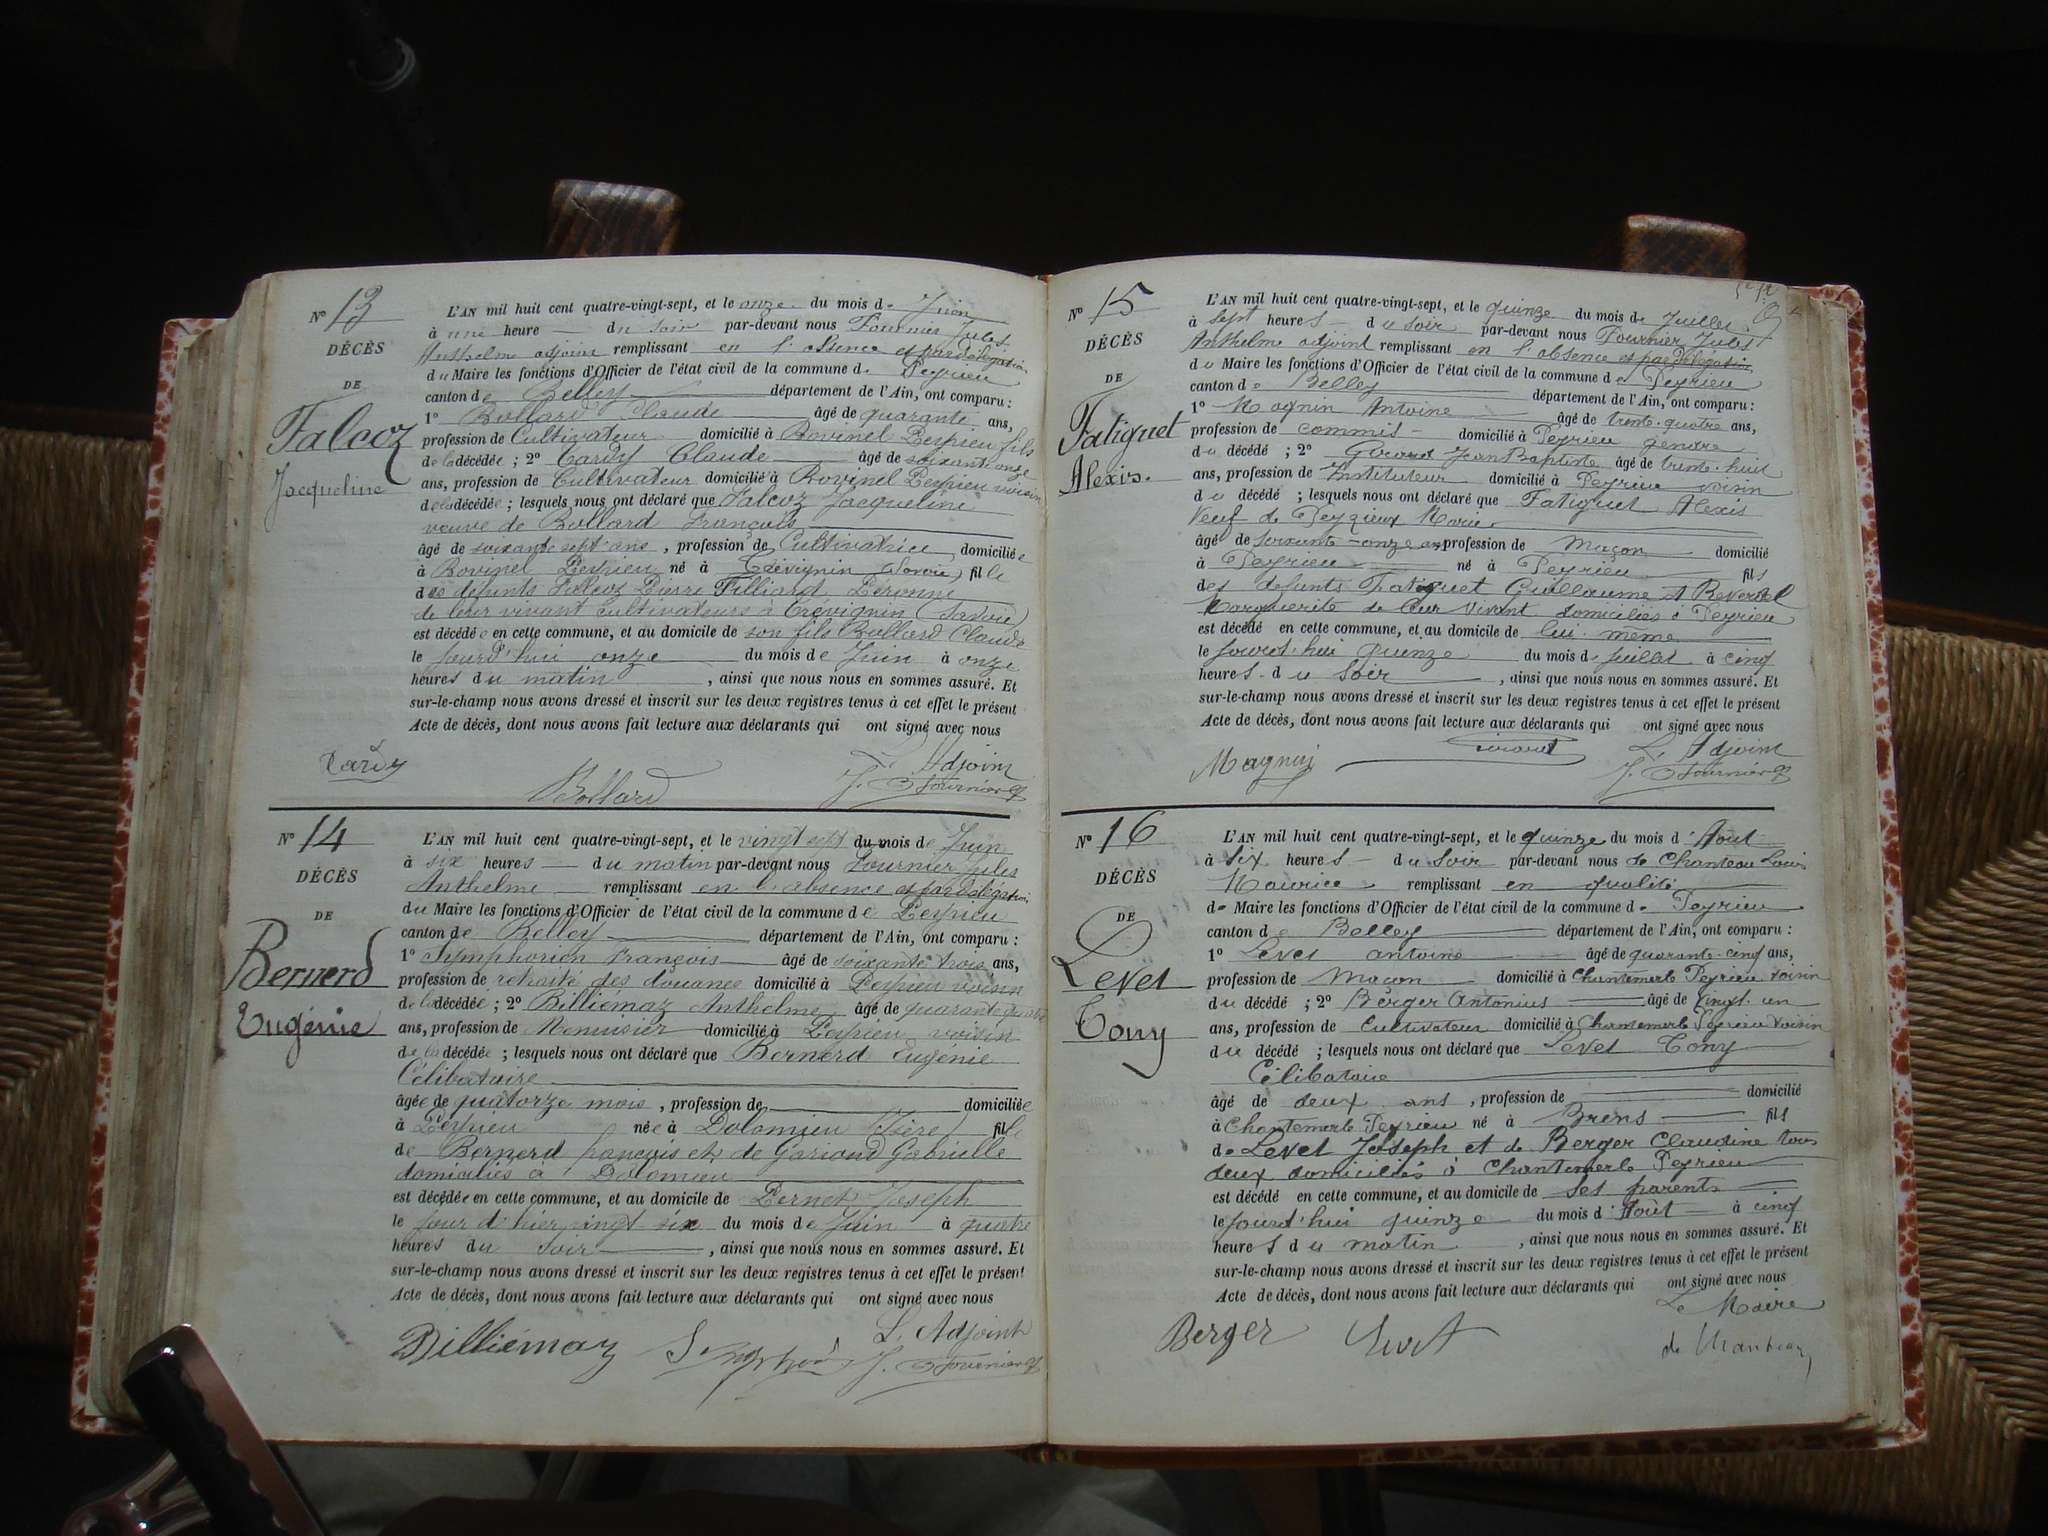 N° 13
DÉCÈS
DE
Falcoz
Jacqueline
L'AN mil huit cent quatre-vingt-sept, et le onze du mois de Juin
à une heure du soir par-devant nous Fournier Jules
Anthelme adjoint remplissant en l'absence et par délégation
du Maire les fonctions d'Officier de l'état civil de la commune de Peyrieu
canton de Belley département de l'Ain, ont comparu :
1° Bollard Claude âgé de quarante ans,
profession de Cultivateur domicilié à Rovinel Peyrieu fils
de la décédée ; 2° Cardy Claude âgé de soixante onze
ans, profession de Cultivateur domicilié à Rovinel Peyrieu voisin
de la décédée ; lesquels nous ont déclaré que Falcoz Jacqueline
veuve de Bollard François
âgé de soixante sept ans, profession de Cultivatrice domiciliée
à Rovinel Peyrieu né à Trévignin (Savoie) fille
des défunts Falcoz Pierre Filliard Péronne
de leur vivant cultivateurs à Trévignin (Savoie)
est décédée en cette commune, et au domicile de son fils Bollard Claude
le jourd'hui onze du mois de Juin à onze
heures du matin, ainsi que nous nous en sommes assuré. Et
sur-le-champ nous avons dressé et inscrit sur les deux registres tenus à cet effet le présent
Acte de décès, dont nous avons fait lecture aux déclarants qui ont signé avec nous
L'Adjoint
Cardy Bollard J. Fournier
N° 14
DÉCÈS
DE
Bernerd
Eugénie
L'AN mil huit cent quatre-vingt-sept, et le vingt sept du mois de Juin
à six heures du matin par-devant nous Fournier Jules
Anthelme remplissant en l'absence et par délégation
du Maire les fonctions d'Officier de l'état civil de la commune de Peyrieu
canton de Belley département de l'Ain, ont comparu :
1° Symphorien François âgé de soixante trois ans,
profession de retraité des douanes domicilié à Peyrieu voisin
de la décédée ; 2° Billiemaz Anthelme âgé de quarante quatre
ans, profession de Menuisier domicilié à Peyrieu voisin
de la décédée ; lesquels nous ont déclaré que Bernerd Eugénie
Célibataire
âgée de quatorze mois, profession de domiciliée
à Peyrieu née à Dolomieu (Isère) fille
de Bernerd françois et de Garioud Gabrielle
domiciliés à Dolomieu
est décédée en cette commune, et au domicile de Pernet Joseph
le jour d'hier vingt six du mois de Juin à quatre
heures du soir, ainsi que nous nous en sommes assuré. Et
sur-le-champ nous avons dressé et inscrit sur les deux registres tenus à cet effet le présent
Acte de décès, dont nous avons fait lecture aux déclarants qui ont signé avec nous
L'Adjoint
Billiémaz J. Fournier
N° 15
DÉCÈS
DE
Fatiguet
Alexis.
L'AN mil huit cent quatre-vingt-sept, et le quinze du mois de Juillet
à sept heures du soir par-devant nous Fournier Jules
Anthelme adjoint remplissant en l'absence et par délégation
du Maire les fonctions d'Officier de l'état civil de la commune de Peyrieu
canton de Belley département de l'Ain, ont comparu :
1° Magnin Antoine âgé de trente-quatre ans,
profession de commis domicilié à Peyrieu gendre
du décédé ; 2° Giroud Jean Baptiste âgé de trente-huit
ans, profession de Instituteur domicilié à Peyrieu voisin
du décédé ; lesquels nous ont déclaré que Fatiguet Alexis
Veuf de Peyzieux Marie
âgé de soixante-onze ans profession de Maçon domicilié
à Peyrieu né à Peyrieu fils
des défunts Fatiguet Guillaume et Reverdel
Marguerite de leur vivant domiciliés à Peyrieu
est décédé en cette commune, et au domicile de lui-même
le jourd'hui quinze du mois de Juillet à cinq
heures du soir, ainsi que nous nous en sommes assuré. Et
sur-le-champ nous avons dressé et inscrit sur les deux registres tenus à cet effet le présent
Acte de décès, dont nous avons fait lecture aux déclarants qui ont signé avec nous
Magnin Giroud L'Adjoint
J. Fournier
N° 16
DÉCÈS
DE
Levet
Tony
L'AN mil huit cent quatre-vingt-sept, et le quinze du mois d'Août
à six heures du soir par-devant nous de Chanteau Louis
Maurice remplissant en qualité
de Maire les fonctions d'Officier de l'état civil de la commune de Peyrieu
canton de Belley département de l'Ain, ont comparu :
1° Levet antoine âgé de quarante-cinq ans,
profession de Maçon domicilié à Chantemerle Peyrieu voisin
du décédé ; 2° Berger Antonius âgé de vingt-un
ans, profession de Cultivateur domicilié à Chantemerle Peyrieu voisin
du décédé ; lesquels nous ont déclaré que Levet Tony
Célibataire
âgé de deux ans, profession de domicilié
à Chantemerle Peyrieu né à Brens fils
de Levet Joseph et de Berger Claudine tous
deux domiciliés à Chantemerle Peyrieu
est décédé en cette commune, et au domicile de ses parents
le jourd'hui quinze du mois d'Août à cinq
heures du matin, ainsi que nous nous en sommes assuré. Et
sur-le-champ nous avons dressé et inscrit sur les deux registres tenus à cet effet le présent
Acte de décès, dont nous avons fait lecture aux déclarants qui ont signé avec nous
Le Maire
Berger Levet de Chanteau